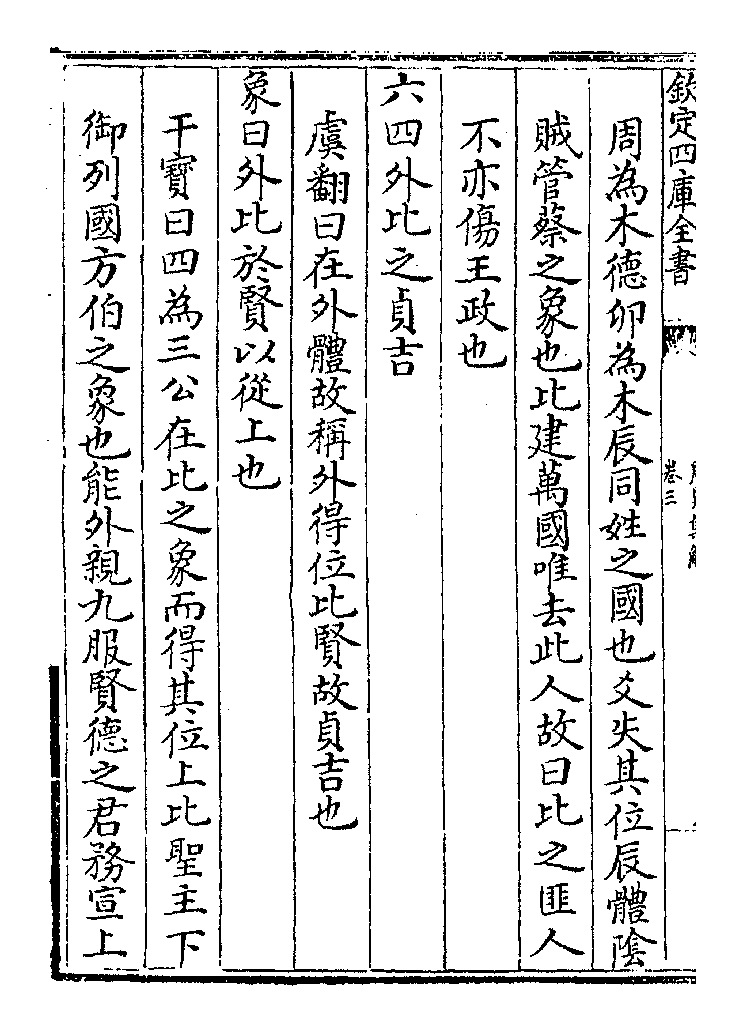 欽定四庫全書
卷三
周為木德卯為木辰同姓之國也爻失其位辰體陰
賊管蔡之象也比建萬國唯去此人故曰比之匪人
不亦傷王政也
六四外比之貞吉
虞翻曰在外體故稱外得位比賢故貞吉也
象曰外比於賢以從上也
干寶曰四為三公在比之象而得其位上比聖主下
御列國方伯之象也能外親九服賢德之君務宣上